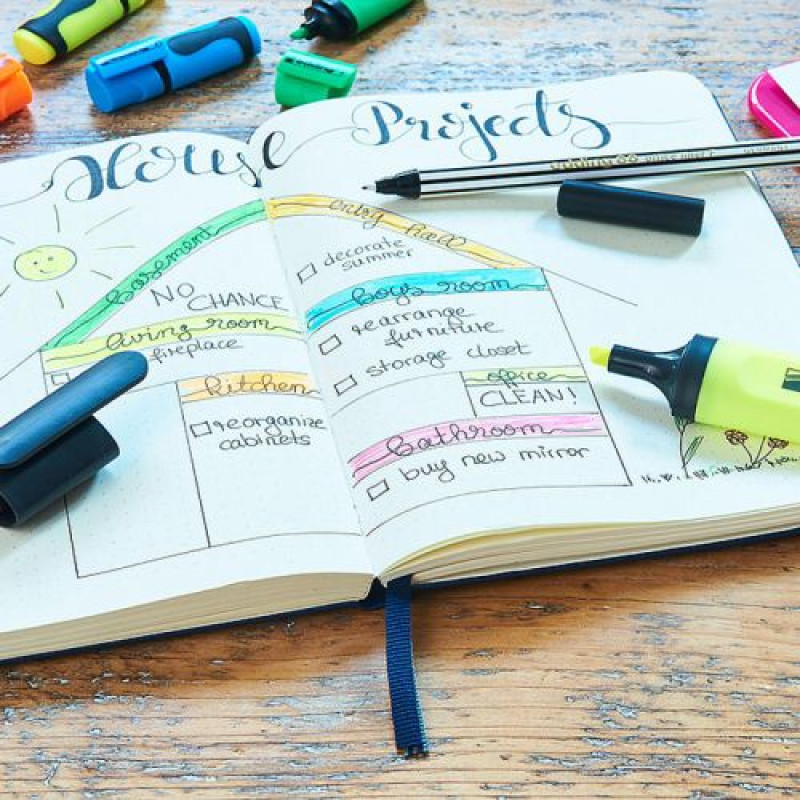 House Projects
basement
NO
CHANCE
living room
fireplace
kitchen
reorganize
cabinets
entry hall
decorate
summer
boys room
rearrange
furniture
storage closet
office
CLEAN!
bathroom
buy new mirror